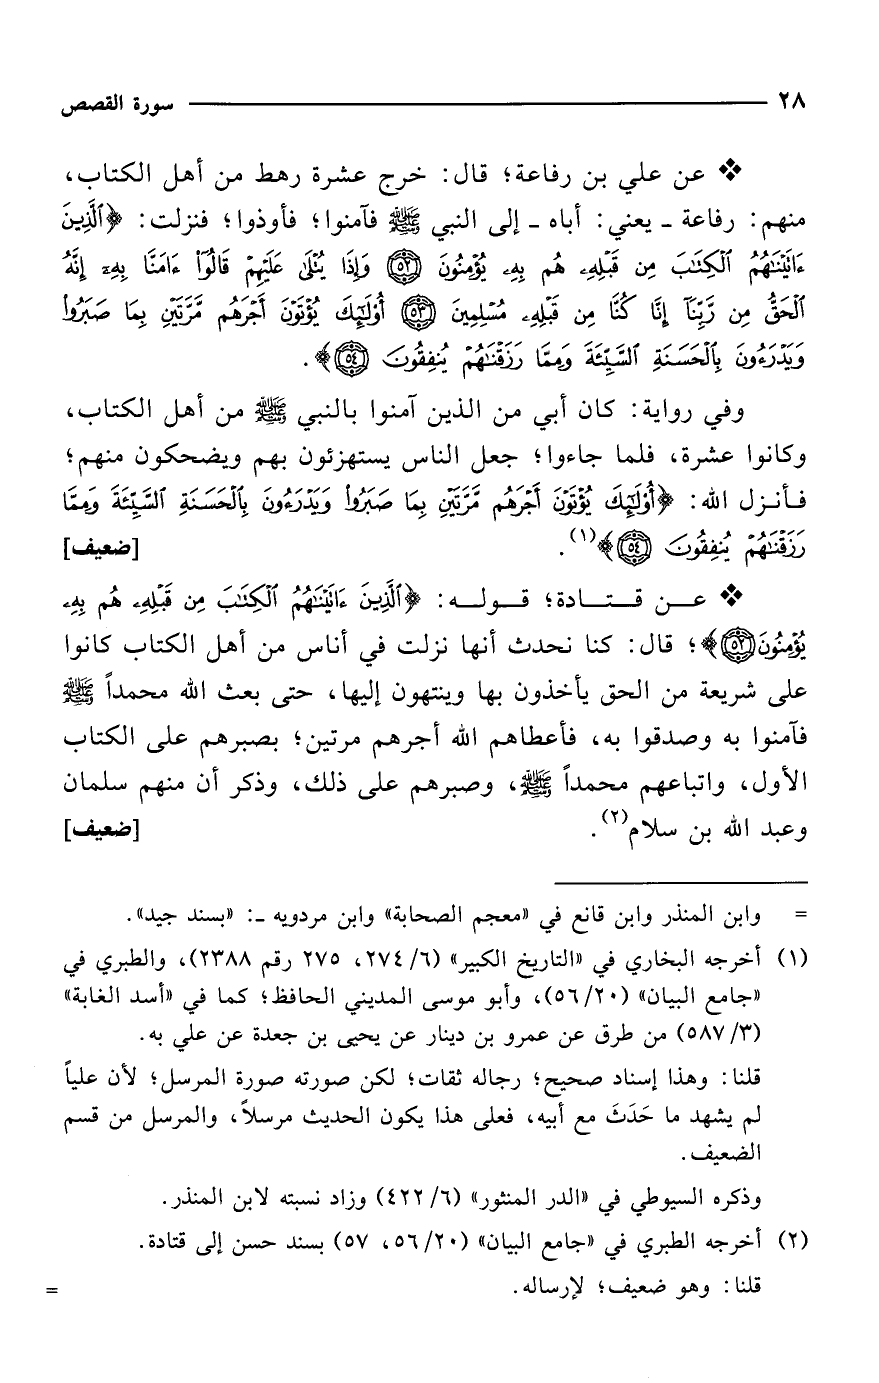 ٢٨ سورة القصص
❖ عن علي بن رفاعة؛ قال: خرج عشرة رهط من أهل الكتاب،
منهم: رفاعة ـ يعني: أباه ـ إلى النبي ﷺ فآمنوا؛ فأوذوا؛ فنزلت: ﴿ٱلَّذِينَ
ءَاتَيْنَٰهُمُ ٱلْكِتَٰبَ مِن قَبْلِهِۦ هُم بِهِۦ يُؤْمِنُونَ ٥٢ وَإِذَا يُتْلَىٰ عَلَيْهِمْ قَالُوٓا۟ ءَامَنَّا بِهِۦٓ إِنَّهُ
ٱلْحَقُّ مِن رَّبِّنَآ إِنَّا كُنَّا مِن قَبْلِهِۦ مُسْلِمِينَ ٥٣ أُو۟لَٰٓئِكَ يُؤْتَوْنَ أَجْرَهُم مَّرَّتَيْنِ بِمَا صَبَرُوا۟
وَيَدْرَءُونَ بِٱلْحَسَنَةِ ٱلسَّيِّئَةَ وَمِمَّا رَزَقْنَٰهُمْ يُنفِقُونَ ٥٤﴾.
وفي رواية: كان أبي من الذين آمنوا بالنبي ﷺ من أهل الكتاب،
وكانوا عشرة، فلما جاءوا؛ جعل الناس يستهزئون بهم ويضحكون منهم؛
فأنزل الله: ﴿أُو۟لَٰٓئِكَ يُؤْتَوْنَ أَجْرَهُم مَّرَّتَيْنِ بِمَا صَبَرُوا۟ وَيَدْرَءُونَ بِٱلْحَسَنَةِ ٱلسَّيِّئَةَ وَمِمَّا
رَزَقْنَٰهُمْ يُنفِقُونَ ٥٤﴾(١). [ضعيف]
❖ عـن قـتـادة؛ قـولـه: ﴿ٱلَّذِينَ ءَاتَيْنَٰهُمُ ٱلْكِتَٰبَ مِن قَبْلِهِۦ هُم بِهِۦ
يُؤْمِنُونَ ٥٢﴾؛ قال: كنا نحدث أنها نزلت في أناس من أهل الكتاب كانوا
على شريعة من الحق يأخذون بها وينتهون إليها، حتى بعث الله محمداً ﷺ
فآمنوا به وصدقوا به، فأعطاهم الله أجرهم مرتين؛ بصبرهم على الكتاب
الأول، واتباعهم محمداً ﷺ، وصبرهم على ذلك، وذكر أن منهم سلمان
وعبد الله بن سلام(٢). [ضعيف]
= وابن المنذر وابن قانع في «معجم الصحابة» وابن مردويه ـ: «بسند جيد».
(١) أخرجه البخاري في «التاريخ الكبير» (٦/ ٢٧٤، ٢٧٥ رقم ٢٣٨٨)، والطبري في
«جامع البيان» (٢٠/ ٥٦)، وأبو موسى المديني الحافظ؛ كما في «أسد الغابة»
(٣/ ٥٨٧) من طرق عن عمرو بن دينار عن يحيى بن جعدة عن علي به.
قلنا: وهذا إسناد صحيح؛ رجاله ثقات؛ لكن صورته صورة المرسل؛ لأن علياً
لم يشهد ما حَدَثَ مع أبيه، فعلى هذا يكون الحديث مرسلاً، والمرسل من قسم
الضعيف.
وذكره السيوطي في «الدر المنثور» (٦/ ٤٢٢) وزاد نسبته لابن المنذر.
(٢) أخرجه الطبري في «جامع البيان» (٢٠/ ٥٦، ٥٧) بسند حسن إلى قتادة.
قلنا: وهو ضعيف؛ لإرساله. =